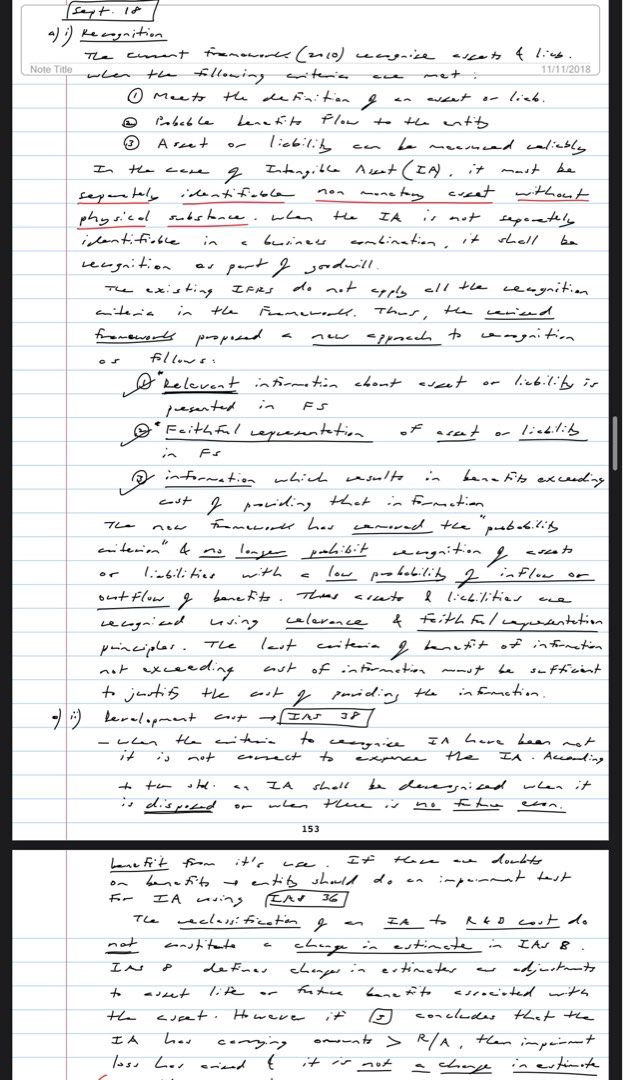 Sept. 18
a) i) Recognition
The current framework (2010) recognise assets & liab.
Note Title
11/11/2018
when the following criteria are met :
① Meets the definition of an asset or liab.
② Probable benefits flow to the entity
③ Asset or liability can be measured reliably
In the case of Intangible Asset (IA), it must be
separately identifiable non monetary asset without
physical substance. when the IA is not separately
identifiable in a business combination, it shall be
recognition as part of goodwill.
The existing IFRS do not apply all the recognition
criteria in the Framework. Thus, the revised
framework proposed a new approach to recognition
as follows:
① "Relevant information about asset or liability is
presented in FS
② "Faithful representation of asset or liability
in FS
③ information which results in benefits exceeding
cost of providing that information
The new framework has removed the "probability
criterion" & no longer prohibit recognition of assets
or liabilities with a low probability of inflow or
outflow of benefits. Thus assets & liabilities are
recognised using relevance & faithful representation
principles. The last criteria of benefit of information
not exceeding cost of information must be sufficient
to justify the cost of providing the information.
a) ii) Development cost → IAS 38
- when the criteria to recognise IA have been met
it is not correct to expense the IA. According
to the std. an IA shall be derecognised when it
is disposed or when there is no future econ.
153
benefit from it's use. If there are doubts
on benefits → entity should do an impairment test
for IA using IAS 36
The reclassification of an IA to R&D cost do
not constitute a change in estimate in IAS 8.
IAS 8 defines changes in estimates as adjustments
to asset life or future benefits associated with
the asset. However if J concludes that the
IA has carrying amounts > R/A, then impairment
loss has arised & it is not a change in estimate